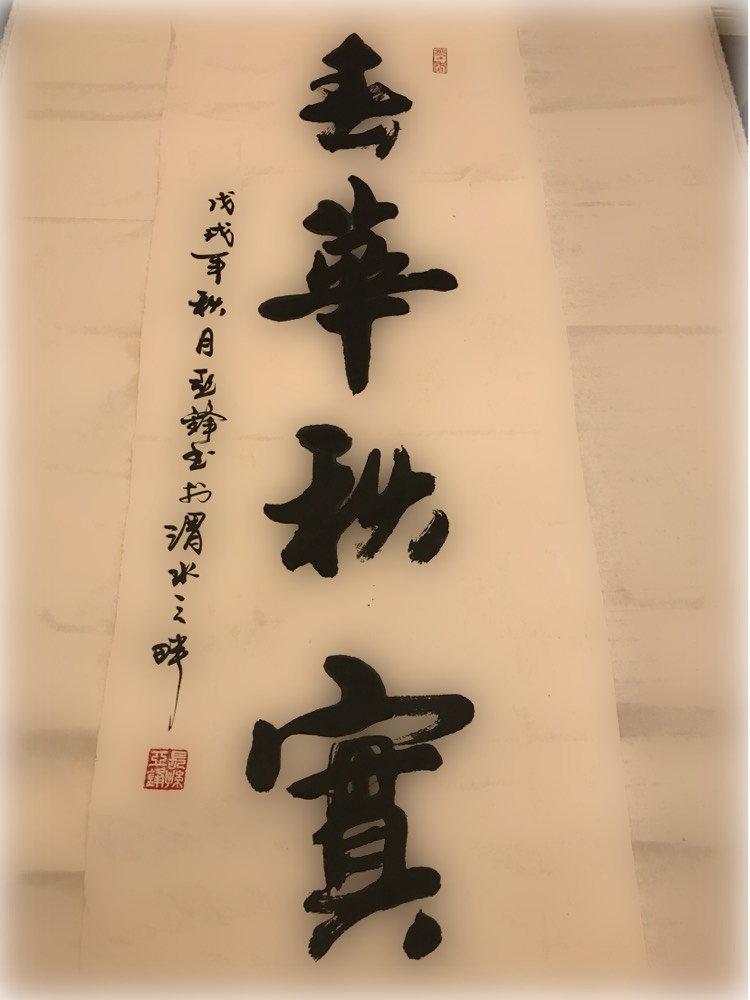 春華秋實
戊戌年秋月亞鋒書於渭水之畔